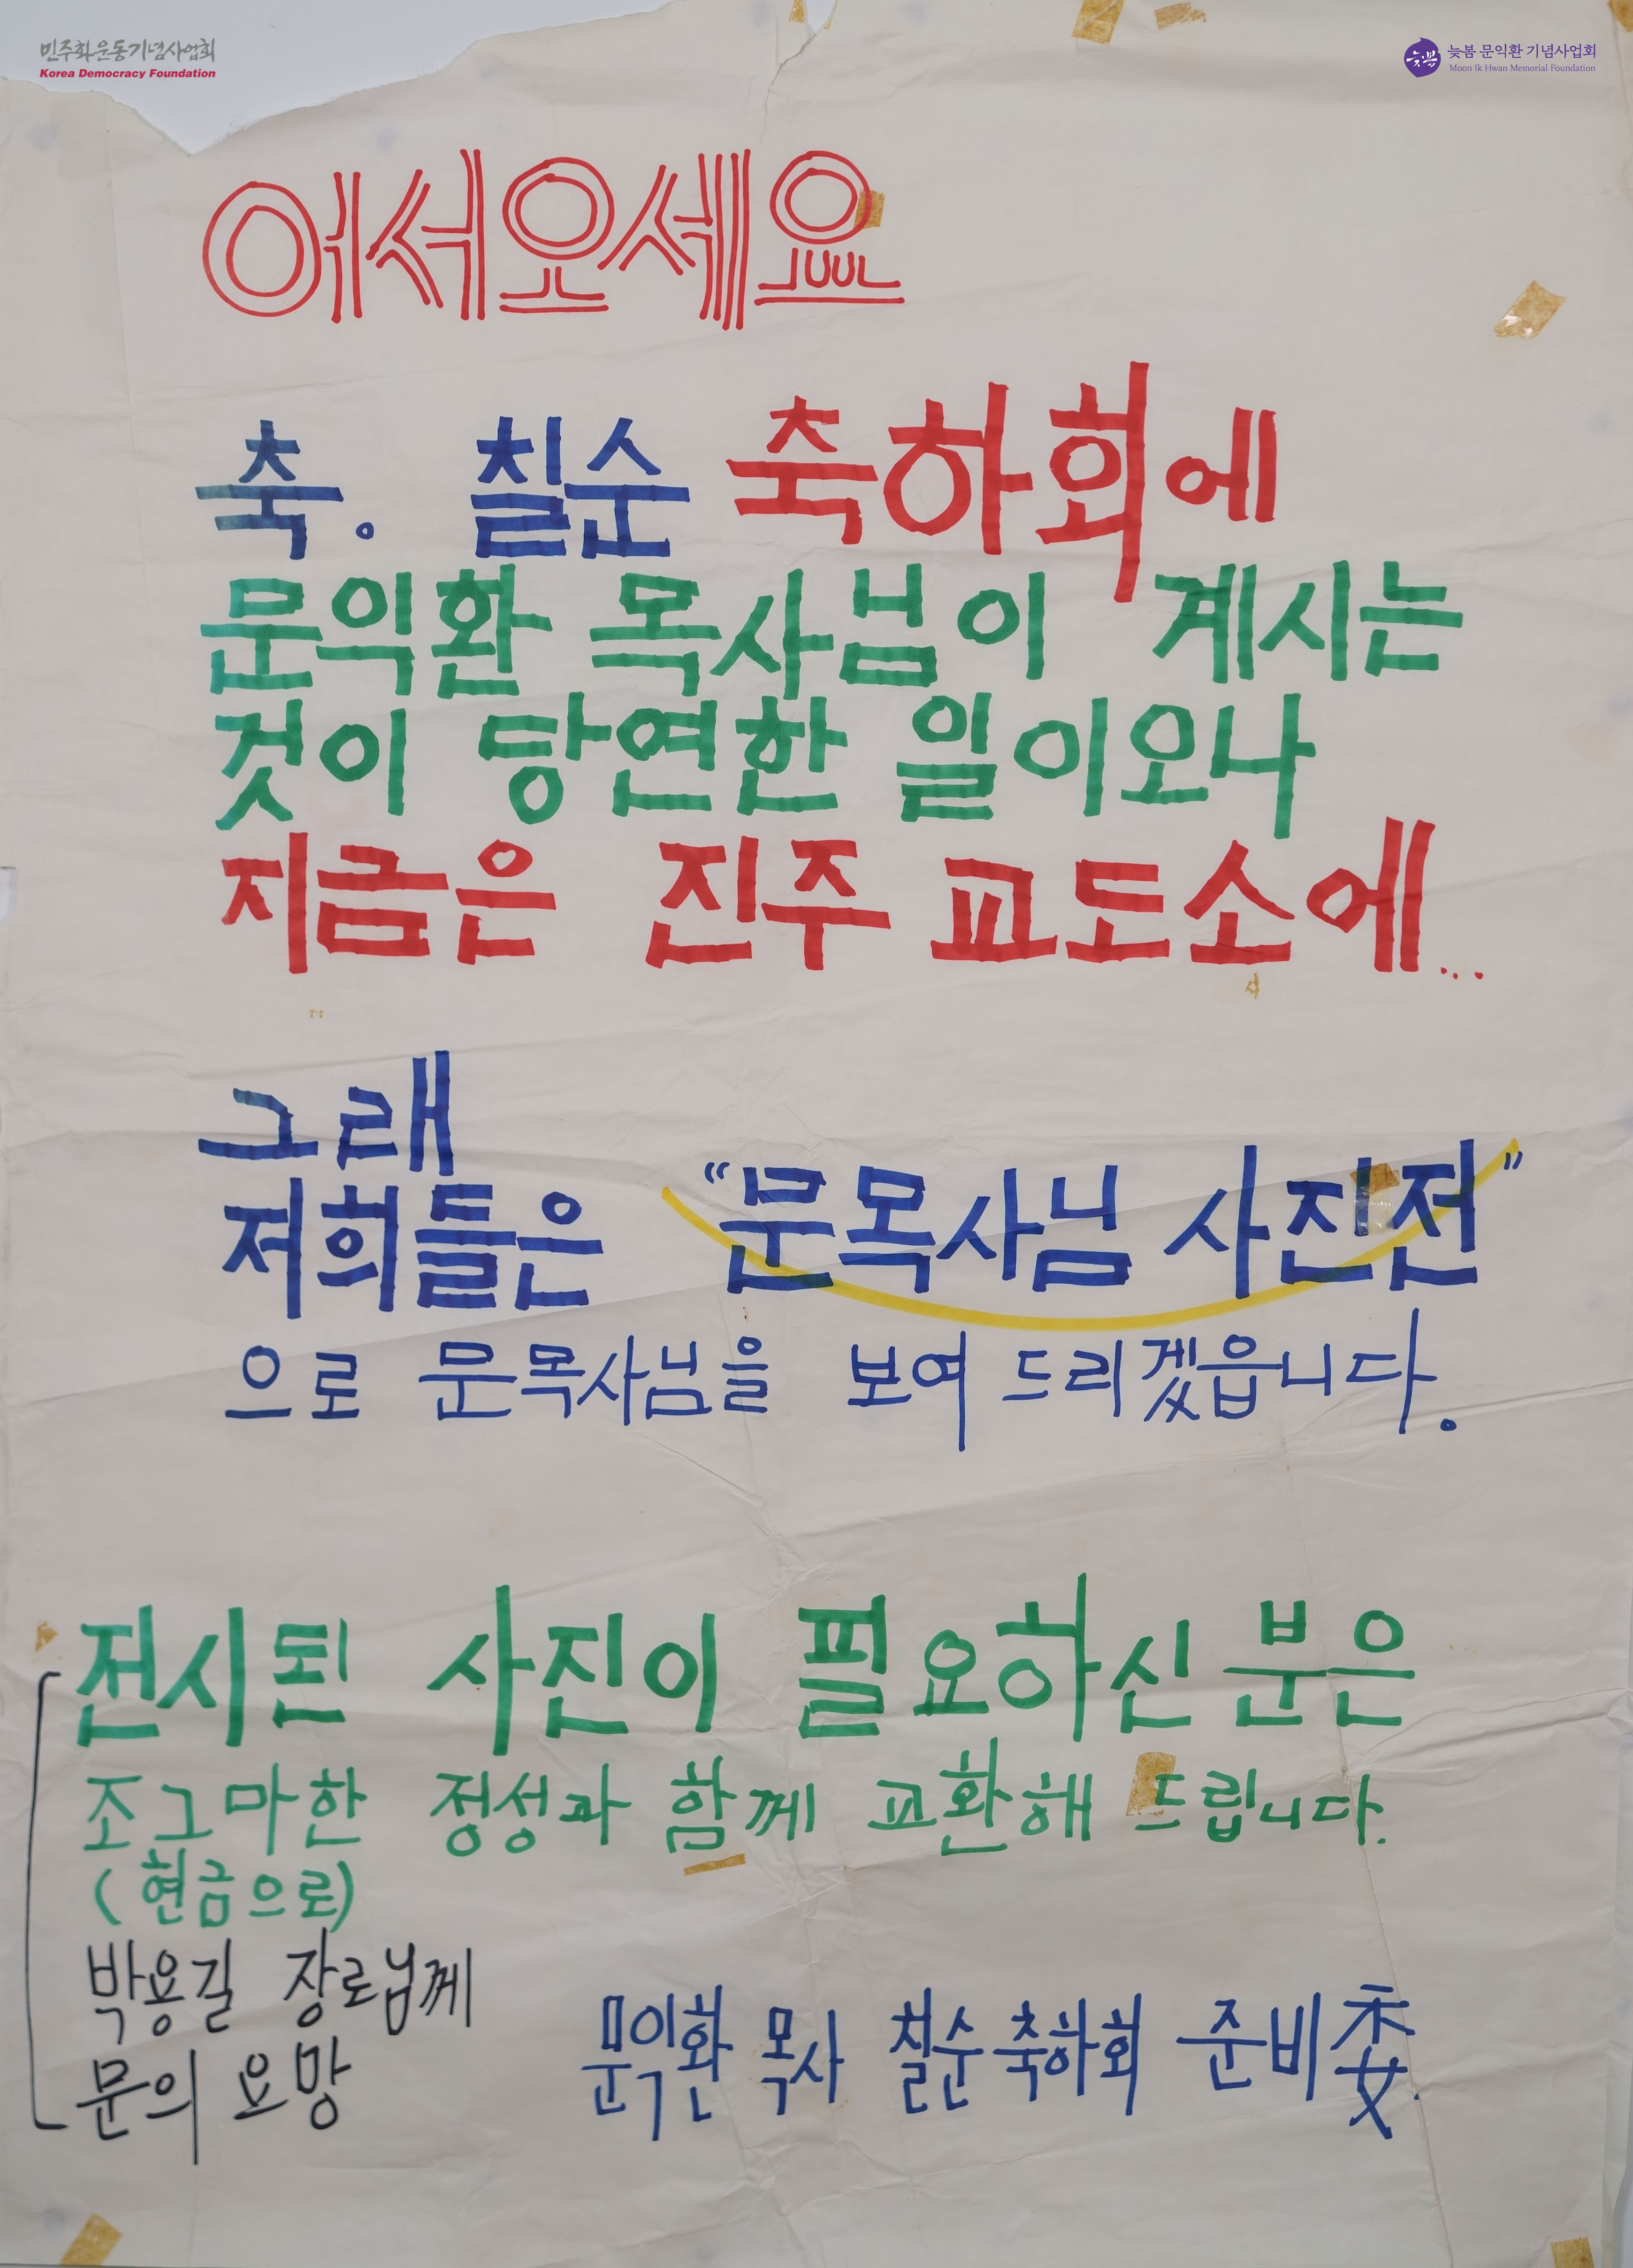 민주화운동기념사업회
Korea Democracy Foundation
늦봄
늦봄 문익환 기념사업회
Moon Ik Hwan Memorial Foundation
어서오세요
축. 칠순 축하회에
문익환 목사님이 계시는
것이 당연한 일이오나
지금은 진주 교도소에...
그래
저희들은 “문목사님 사진전”
으로 문목사님을 보여 드리겠읍니다.
전시된 사진이 필요하신 분은
조그마한 정성과 함께 교환해 드립니다.
(현금으로)
박용길 장로님께
문의 요망
문익환 목사 칠순축하회 준비委.